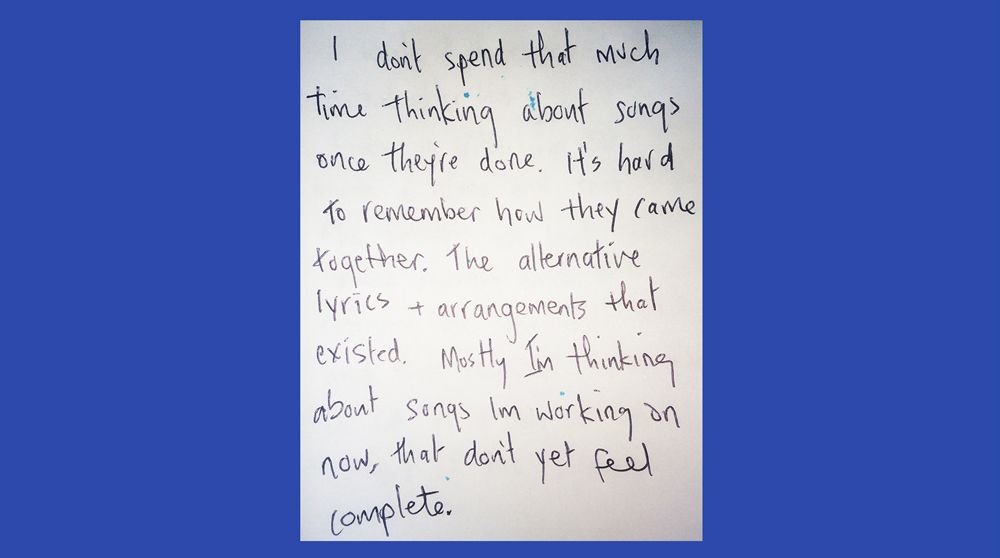 I don't spend that much
time thinking about songs
once they're done. it's hard
to remember how they came
together. The alternative
lyrics + arrangements that
existed. Mostly I'm thinking
about songs Im working on
now, that don't yet feel
complete.